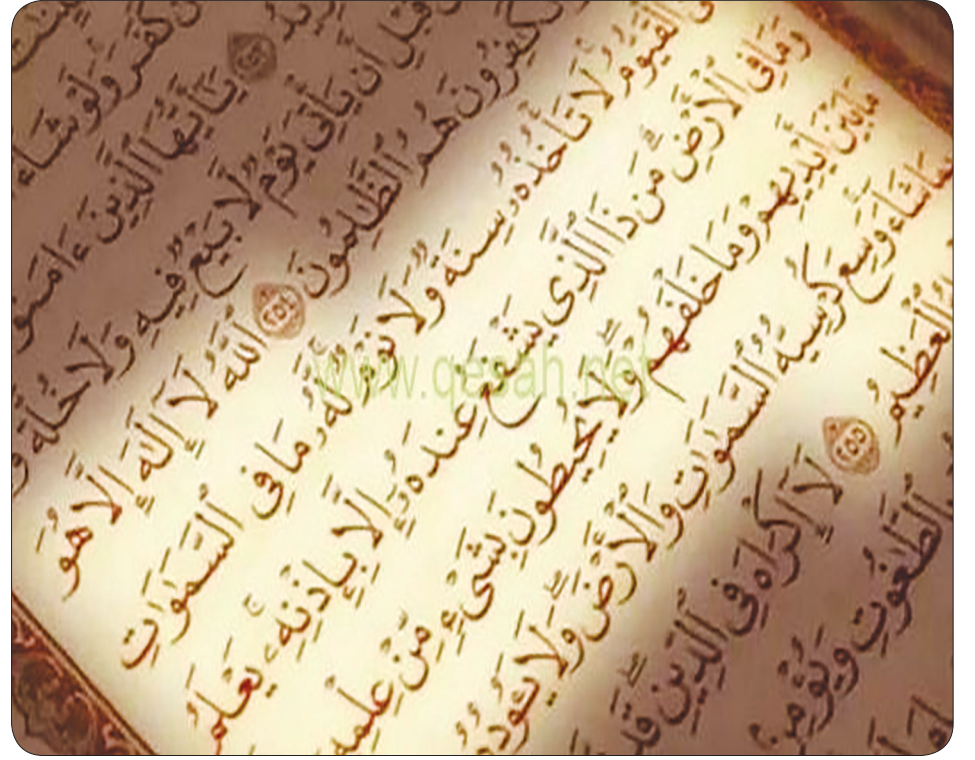 كَفَرَ وَلَوْ شَآءَ
يَٰٓأَيُّهَا ٱلَّذِينَ ءَامَنُوٓا۟
قَبْلِ أَن يَأْتِىَ يَوْمٌ لَّا بَيْعٌ فِيهِ وَلَا خُلَّةٌ وَ
كَٰفِرُونَ هُمُ ٱلظَّٰلِمُونَ ٢٥٤ ٱللَّهُ لَآ إِلَٰهَ إِلَّا هُوَ
ٱلْقَيُّومُ لَا تَأْخُذُهُۥ سِنَةٌ وَلَا نَوْمٌ لَّهُۥ مَا فِى ٱلسَّمَٰوَٰتِ
وَمَا فِى ٱلْأَرْضِ مَن ذَا ٱلَّذِى يَشْفَعُ عِندَهُۥٓ إِلَّا بِإِذْنِهِۦ يَعْلَمُ
مَا بَيْنَ أَيْدِيهِمْ وَمَا خَلْفَهُمْ وَلَا يُحِيطُونَ بِشَىْءٍ مِّنْ عِلْمِهِ
بِمَا شَآءَ وَسِعَ كُرْسِيُّهُ ٱلسَّمَٰوَٰتِ وَٱلْأَرْضَ وَلَا يَـُٔودُهُ
ٱلْعَظِيمُ ٢٥٥ لَآ إِكْرَاهَ فِى ٱلدِّينِ قَد
ٱلطَّٰغُوتِ وَيُؤْمِنۢ
www.qesah.net